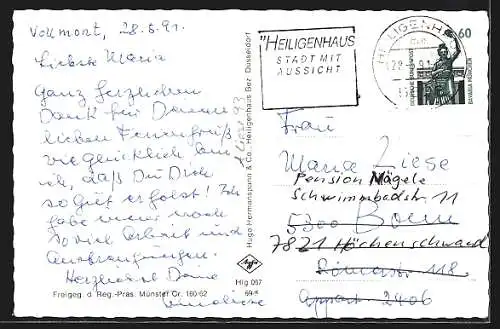 Vollmort, 28.6.91.
Liebste Maria
Ganz herzlichen
Dank für Deinen
lieben Feriengruß
wie glücklich bin
ich, daß Du Dich
so gut erholst! Ich
habe immer noch
so viel Arbeit und
Anstrengungen.
Herzlichst Deine
Freigeg. d. Reg.-Präs. Münster Gr. 160/62
Hugo Hermannspann & Co., Heiligenhaus Bez. Düsseldorf
Agfa
Hlg 057
"HEILIGENHAUS
STADT MIT
AUSSICHT
HEILIGENH
60
BAVARIA MÜNCHEN
Frau
Maria Ziese
Pension Nägele
Schwimmbadstr. 11
5300 Bonn
7821 Höchenschwand
Römerstr. 118
Appart 2406